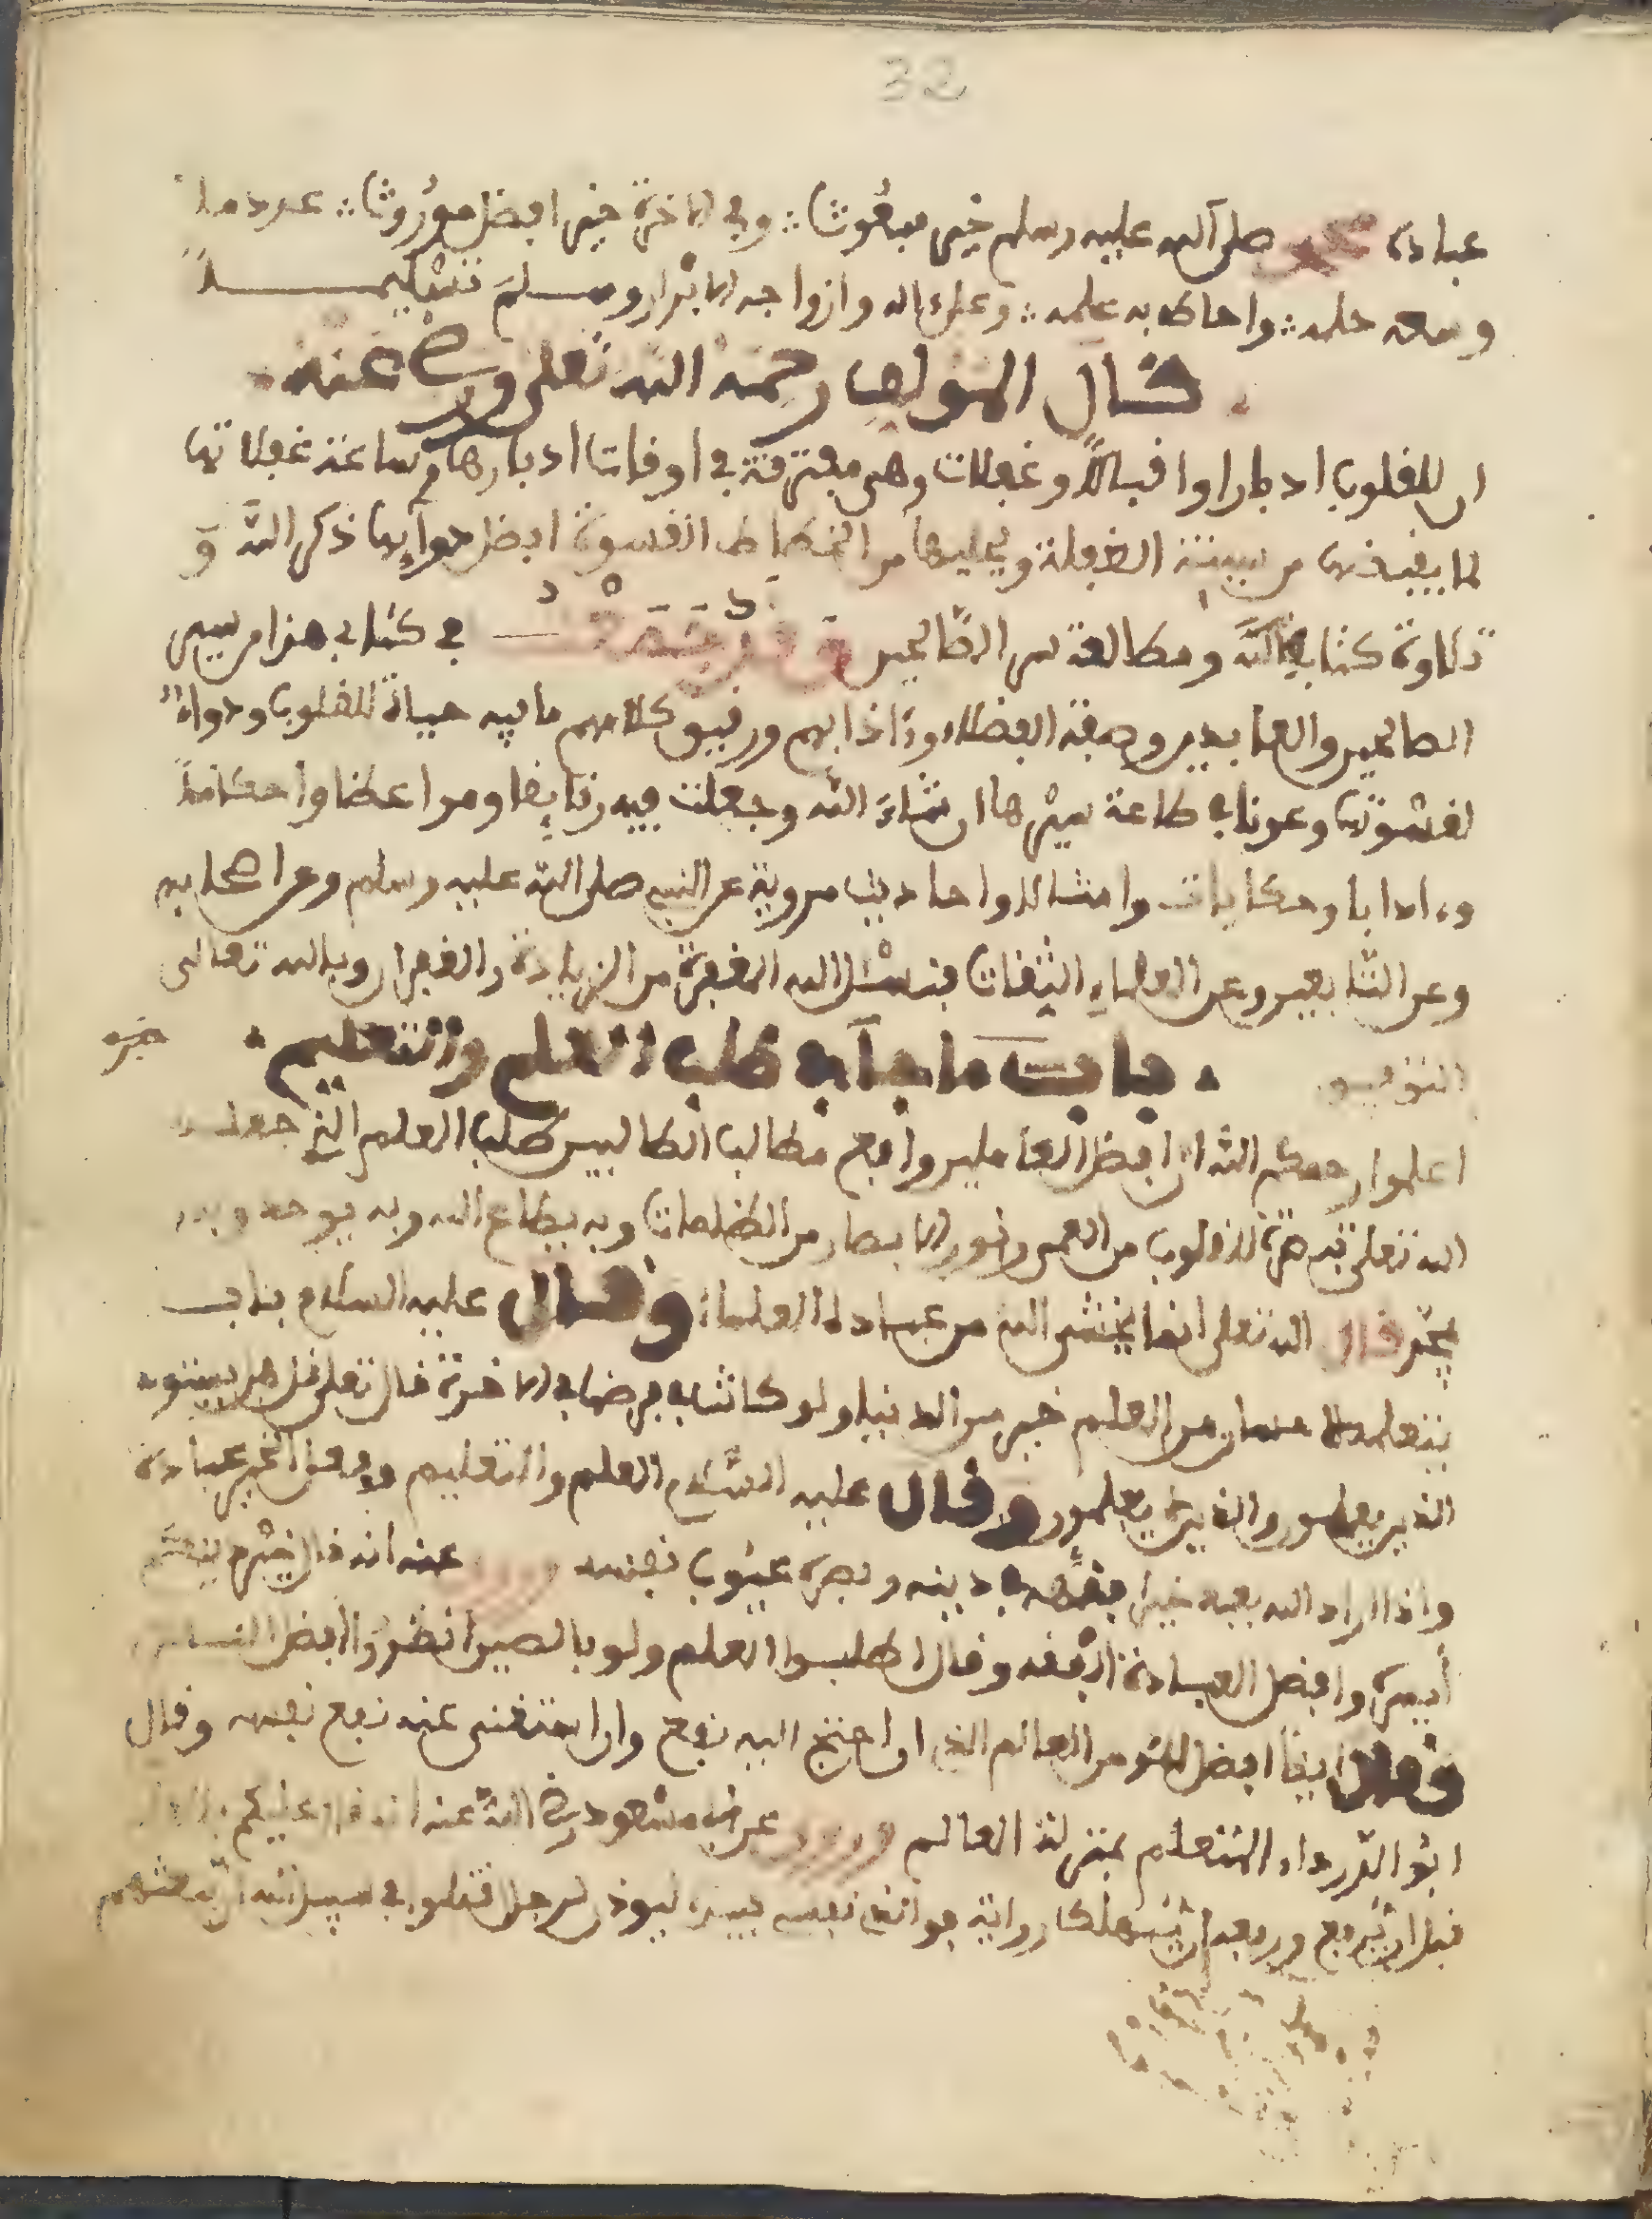 32
عباده محمد صلى الله عليه وسلم خير مبعوثا ؞ وفي الاخرة خير افضل موروثا ؞ عدد ما
وسعه حلمه ؞ واحاط به علمه ؞ وعلى اله وازواجه الابرار وسلم تسليما
قال المولف رحمه الله تعلى ورضي عنه
ان للقلوب ادبارا واقبالا وغفلات وهي مفترقة في اوقات ادبارها وساعة غفلاتها
لما يقيضها من سنة الغفلة ويجليها من القسوة افضل دوآيها ذكر الله و
تلاوة كتاب الله ومطالعة سير الصالحين وقد جمعت في كتابي هذا من سير
الصالحين والعابدين وصفة الفضلاء وءادابهم ورقيق كلامهم ما فيه حياة للقلوب ودواء
لقسوتها وعونا في طاعة سيرها ان شاء الله وجعلت فيه رقايقا ومواعظا واحكاما
وءادابا وحكايات وامثالا واحاديث مروية عن النبي صلى الله عليه وسلم وعن اصحابه
وعن التابعين وعن العلماء الثقات فنسئل الله المغفرة من الزيادة والنقصان وبالله تعالى
التوفيق باب ما جآء في طلب العلم والتعليم
اعلموا رحمكم الله ان افضل العاملين وانجع مطالب الطالبين طلب العلم الذي جعله
الله تعلى تبصرة للقلوب من العمى ونور الابصار من الظلمات وبه يطاع الله وبه يوحد وبه
قال الله تعلى انما يخشى الله من عباده العلماء وقال عليه السلام باب
يتعلمه الانسان من العلم خير من الدنيا ولو كانت في الاخرة قال تعلى قل هل يستوي
الذين يعلمون والذين لا يعلمون وقال عليه السلام العلم والتعليم عبادة
واذا اراد الله بعبد خيرا فقهه في دينه وبصره عيوب نفسه عنه انه قال خير دينكم
أيسره وافضل العبادة الفقه وقال اطلبوا العلم ولو بالصين افضل الناس
وقال ايضا افضل المومن العالم الذي ان احتج اليه نفع وان استغنى عنه نفع نفسه وقال
ابو الدرداء المتعلم بمنزلة العالم عن ابن مسعود رضي الله عنه انه قال عليكم
قبل ان يرفع ورفعه هلاك رواته فوالذي نفسي بيده ليودن رجال قتلوا في سبيل الله ان يبعثهم